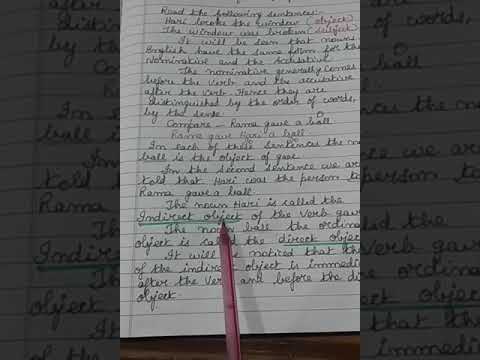 Read the following sentences:-
Hari broke the window (object)
The window was broken (subject)
It will be seen that nouns
English have the same form for the
Nominative and the accusative
The nominative generally comes
before the verb and the accusative
after the verb. Hence they are
distinguished by the order of words,
by the sense. O
Compare - Rama gave a ball
Rama gave Hari a ball
In each of these sentences the no
ball is the object of gave
In the second sentence we ar
told that Hari was the person to
Rama gave a ball.
The noun Hari is called the
Indirect object of the verb gave
The noun ball the ordina
object is called the direct objec
It will be noticed that th
of the indirect object is immedi
after the verb and before the di
object